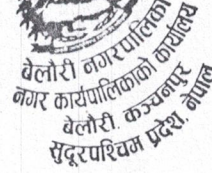 बेलौरी नगरपालिका
नगर कार्यपालिकाको कार्यालय
बेलौरी, कञ्चनपुर
सुदूरपश्चिम प्रदेश, नेपाल